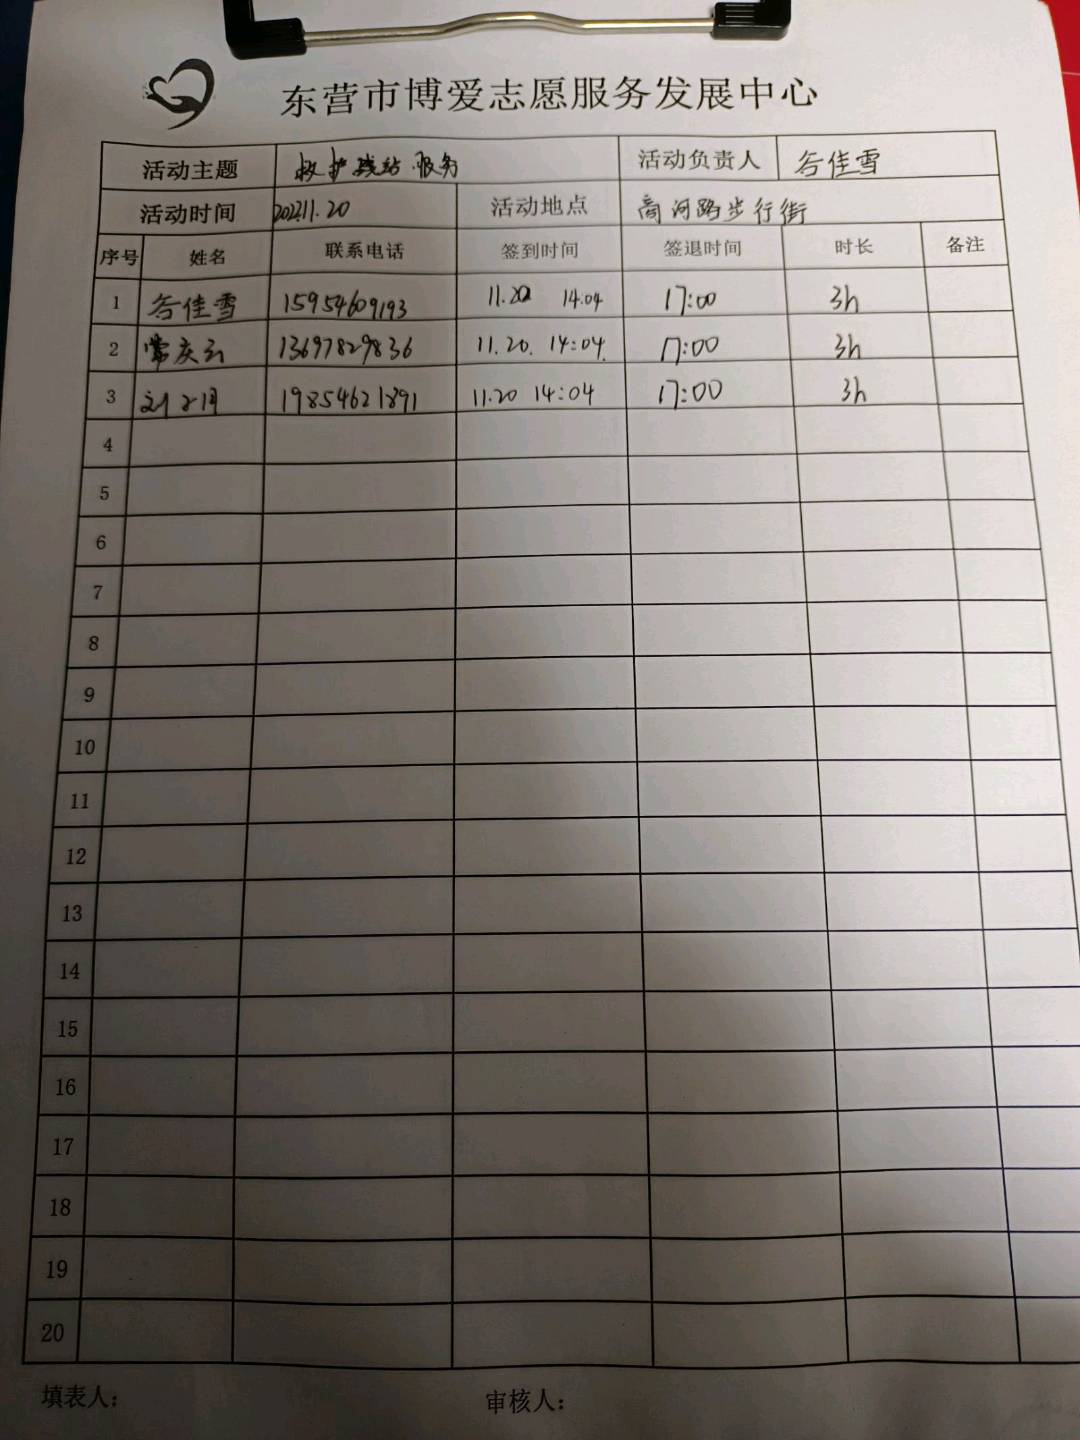 东营市博爱志愿服务发展中心
活动主题 救护驿站服务 活动负责人 谷佳雪
活动时间 2022.11.20 活动地点 商河路步行街
序号 姓名 联系电话 签到时间 签退时间 时长 备注
1 谷佳雪 15954609193 11.20 14:04 17:00 3h
2 常庆云 13697829836 11.20. 14:04. 17:00 3h
3 刘 19854621891 11.20 14:04 17:00 3h
4
5
6
7
8
9
10
11
12
13
14
15
16
17
18
19
20
填表人： 审核人：